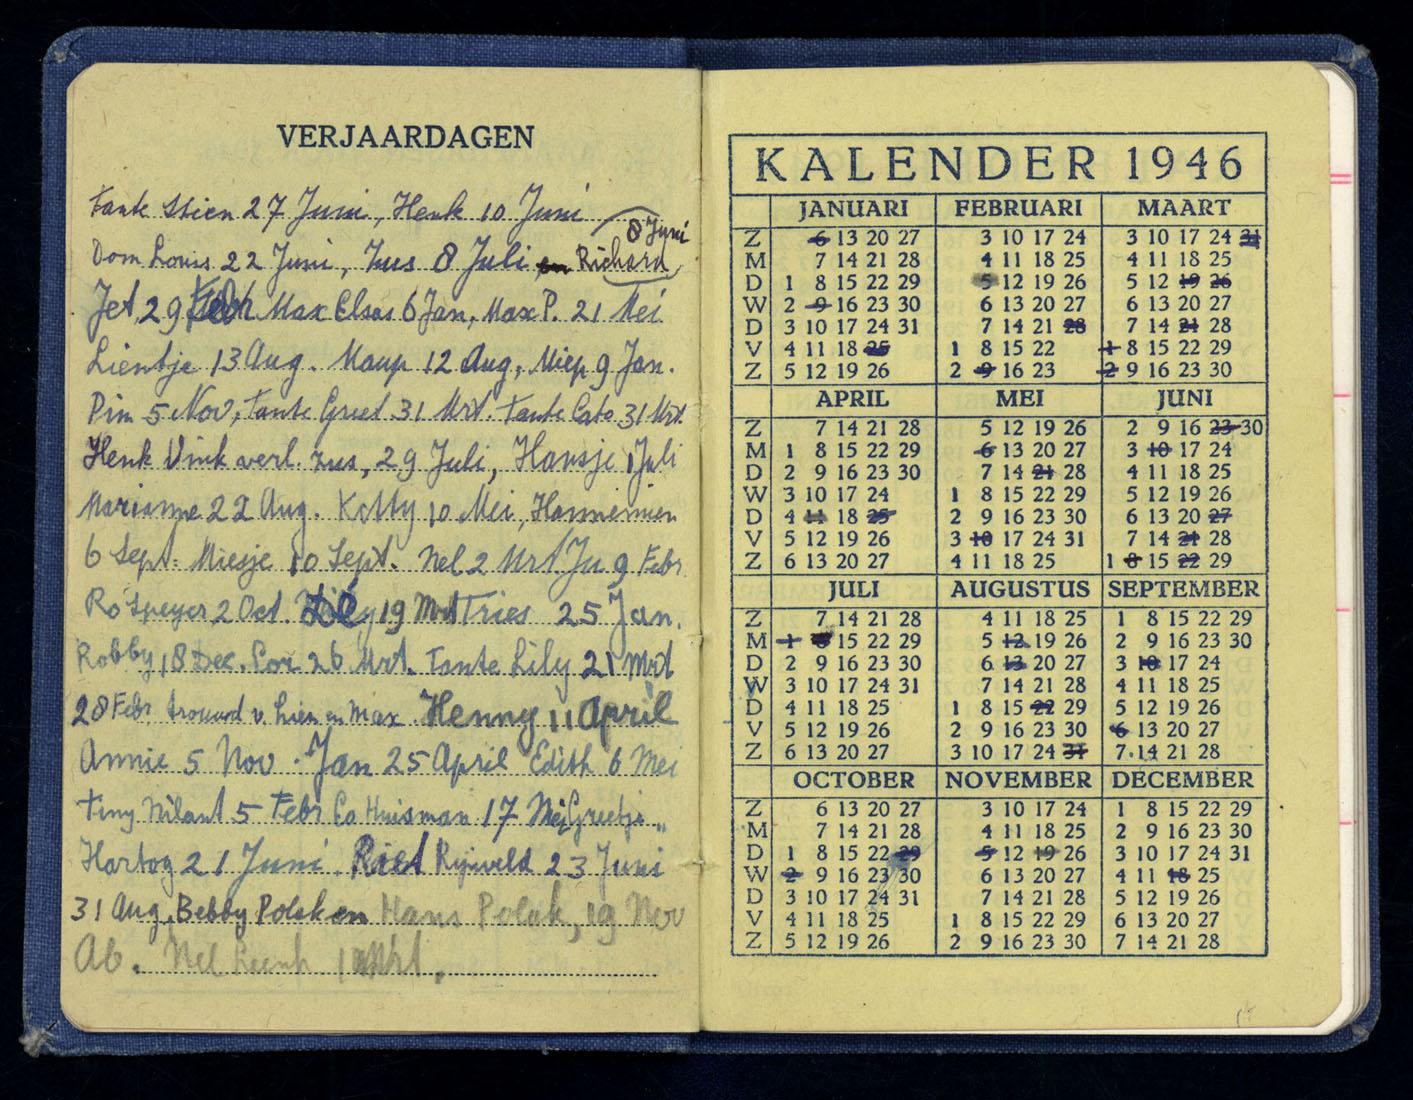 VERJAARDAGEN
Tante Stien 27 Juni, Henk 10 Juni
8 Juni
Oom Louis 22 Juni, Zus 8 Juli en Richard
Jet, 29 Max Elsas 6 Jan, Max P. 21 Mei
Lientje 13 Aug. Maup 12 Aug, Miep 9 Jan.
Pim 5 Nov, Tante Greet 31 Mrt. Tante Cato 31 Mrt.
Henk Vink verl zus, 29 Juli, Hansje 1 Juli
Marianne 22 Aug. Kitty 10 Mei, Hannemien
6 Sept. Miesje 10 Sept. Nel 2 Mrt Ju 9 Febr
Ro Speyer 2 Oct. 19 Mrt Tries 25 Jan.
Robby 18 Dec. Cor 26 Mrt. Tante Lily 21 Mrt
28 Febr trouwd v Lien en Max Henny 11 April
Annie 5 Nov. Jan 25 April Edith 6 Mei
Tiny Nilant 5 Febr Ca Huisman 17 Mei Greetje
Hartog 21 Juni. Riet Rijnveld 23 Juni
31 Aug. Bebby Polak en Hans Polak, 19 Nov
Ab. Nel 1 Mrt.
KALENDER 1946
JANUARI FEBRUARI MAART
Z 6 13 20 27 3 10 17 24 3 10 17 24 31
M 7 14 21 28 4 11 18 25 4 11 18 25
D 1 8 15 22 29 5 12 19 26 5 12 19 26
W 2 9 16 23 30 6 13 20 27 6 13 20 27
D 3 10 17 24 31 7 14 21 28 7 14 21 28
V 4 11 18 25 1 8 15 22 1 8 15 22 29
Z 5 12 19 26 2 9 16 23 2 9 16 23 30
APRIL MEI JUNI
Z 7 14 21 28 5 12 19 26 2 9 16 23 30
M 1 8 15 22 29 6 13 20 27 3 10 17 24
D 2 9 16 23 30 7 14 21 28 4 11 18 25
W 3 10 17 24 1 8 15 22 29 5 12 19 26
D 4 11 18 25 2 9 16 23 30 6 13 20 27
V 5 12 19 26 3 10 17 24 31 7 14 21 28
Z 6 13 20 27 4 11 18 25 1 8 15 22 29
JULI AUGUSTUS SEPTEMBER
Z 7 14 21 28 4 11 18 25 1 8 15 22 29
M 1 8 15 22 29 5 12 19 26 2 9 16 23 30
D 2 9 16 23 30 6 13 20 27 3 10 17 24
W 3 10 17 24 31 7 14 21 28 4 11 18 25
D 4 11 18 25 1 8 15 22 29 5 12 19 26
V 5 12 19 26 2 9 16 23 30 6 13 20 27
Z 6 13 20 27 3 10 17 24 31 7 14 21 28
OCTOBER NOVEMBER DECEMBER
Z 6 13 20 27 3 10 17 24 1 8 15 22 29
M 7 14 21 28 4 11 18 25 2 9 16 23 30
D 1 8 15 22 29 5 12 19 26 3 10 17 24 31
W 2 9 16 23 30 6 13 20 27 4 11 18 25
D 3 10 17 24 31 7 14 21 28 5 12 19 26
V 4 11 18 25 1 8 15 22 29 6 13 20 27
Z 5 12 19 26 2 9 16 23 30 7 14 21 28